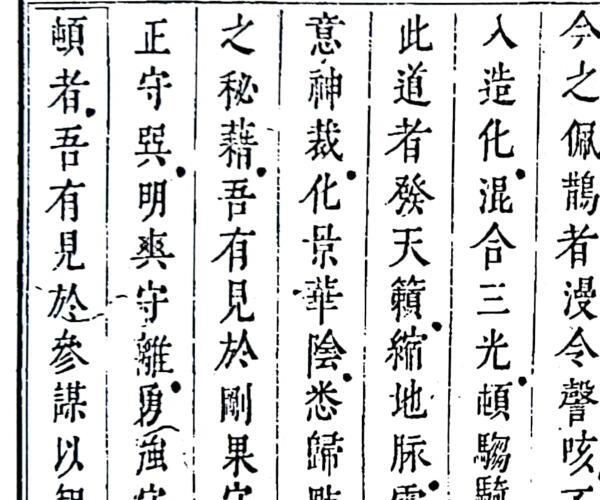 今之佩鵲者漫令謦咳
入造化混合三光頓騶
此道者發天籟縮地脉
意神裁化景華陰悉歸
之秘藉吾有見於剛果
正守巽明爽守離勇強
頓者吾有見於參謀以